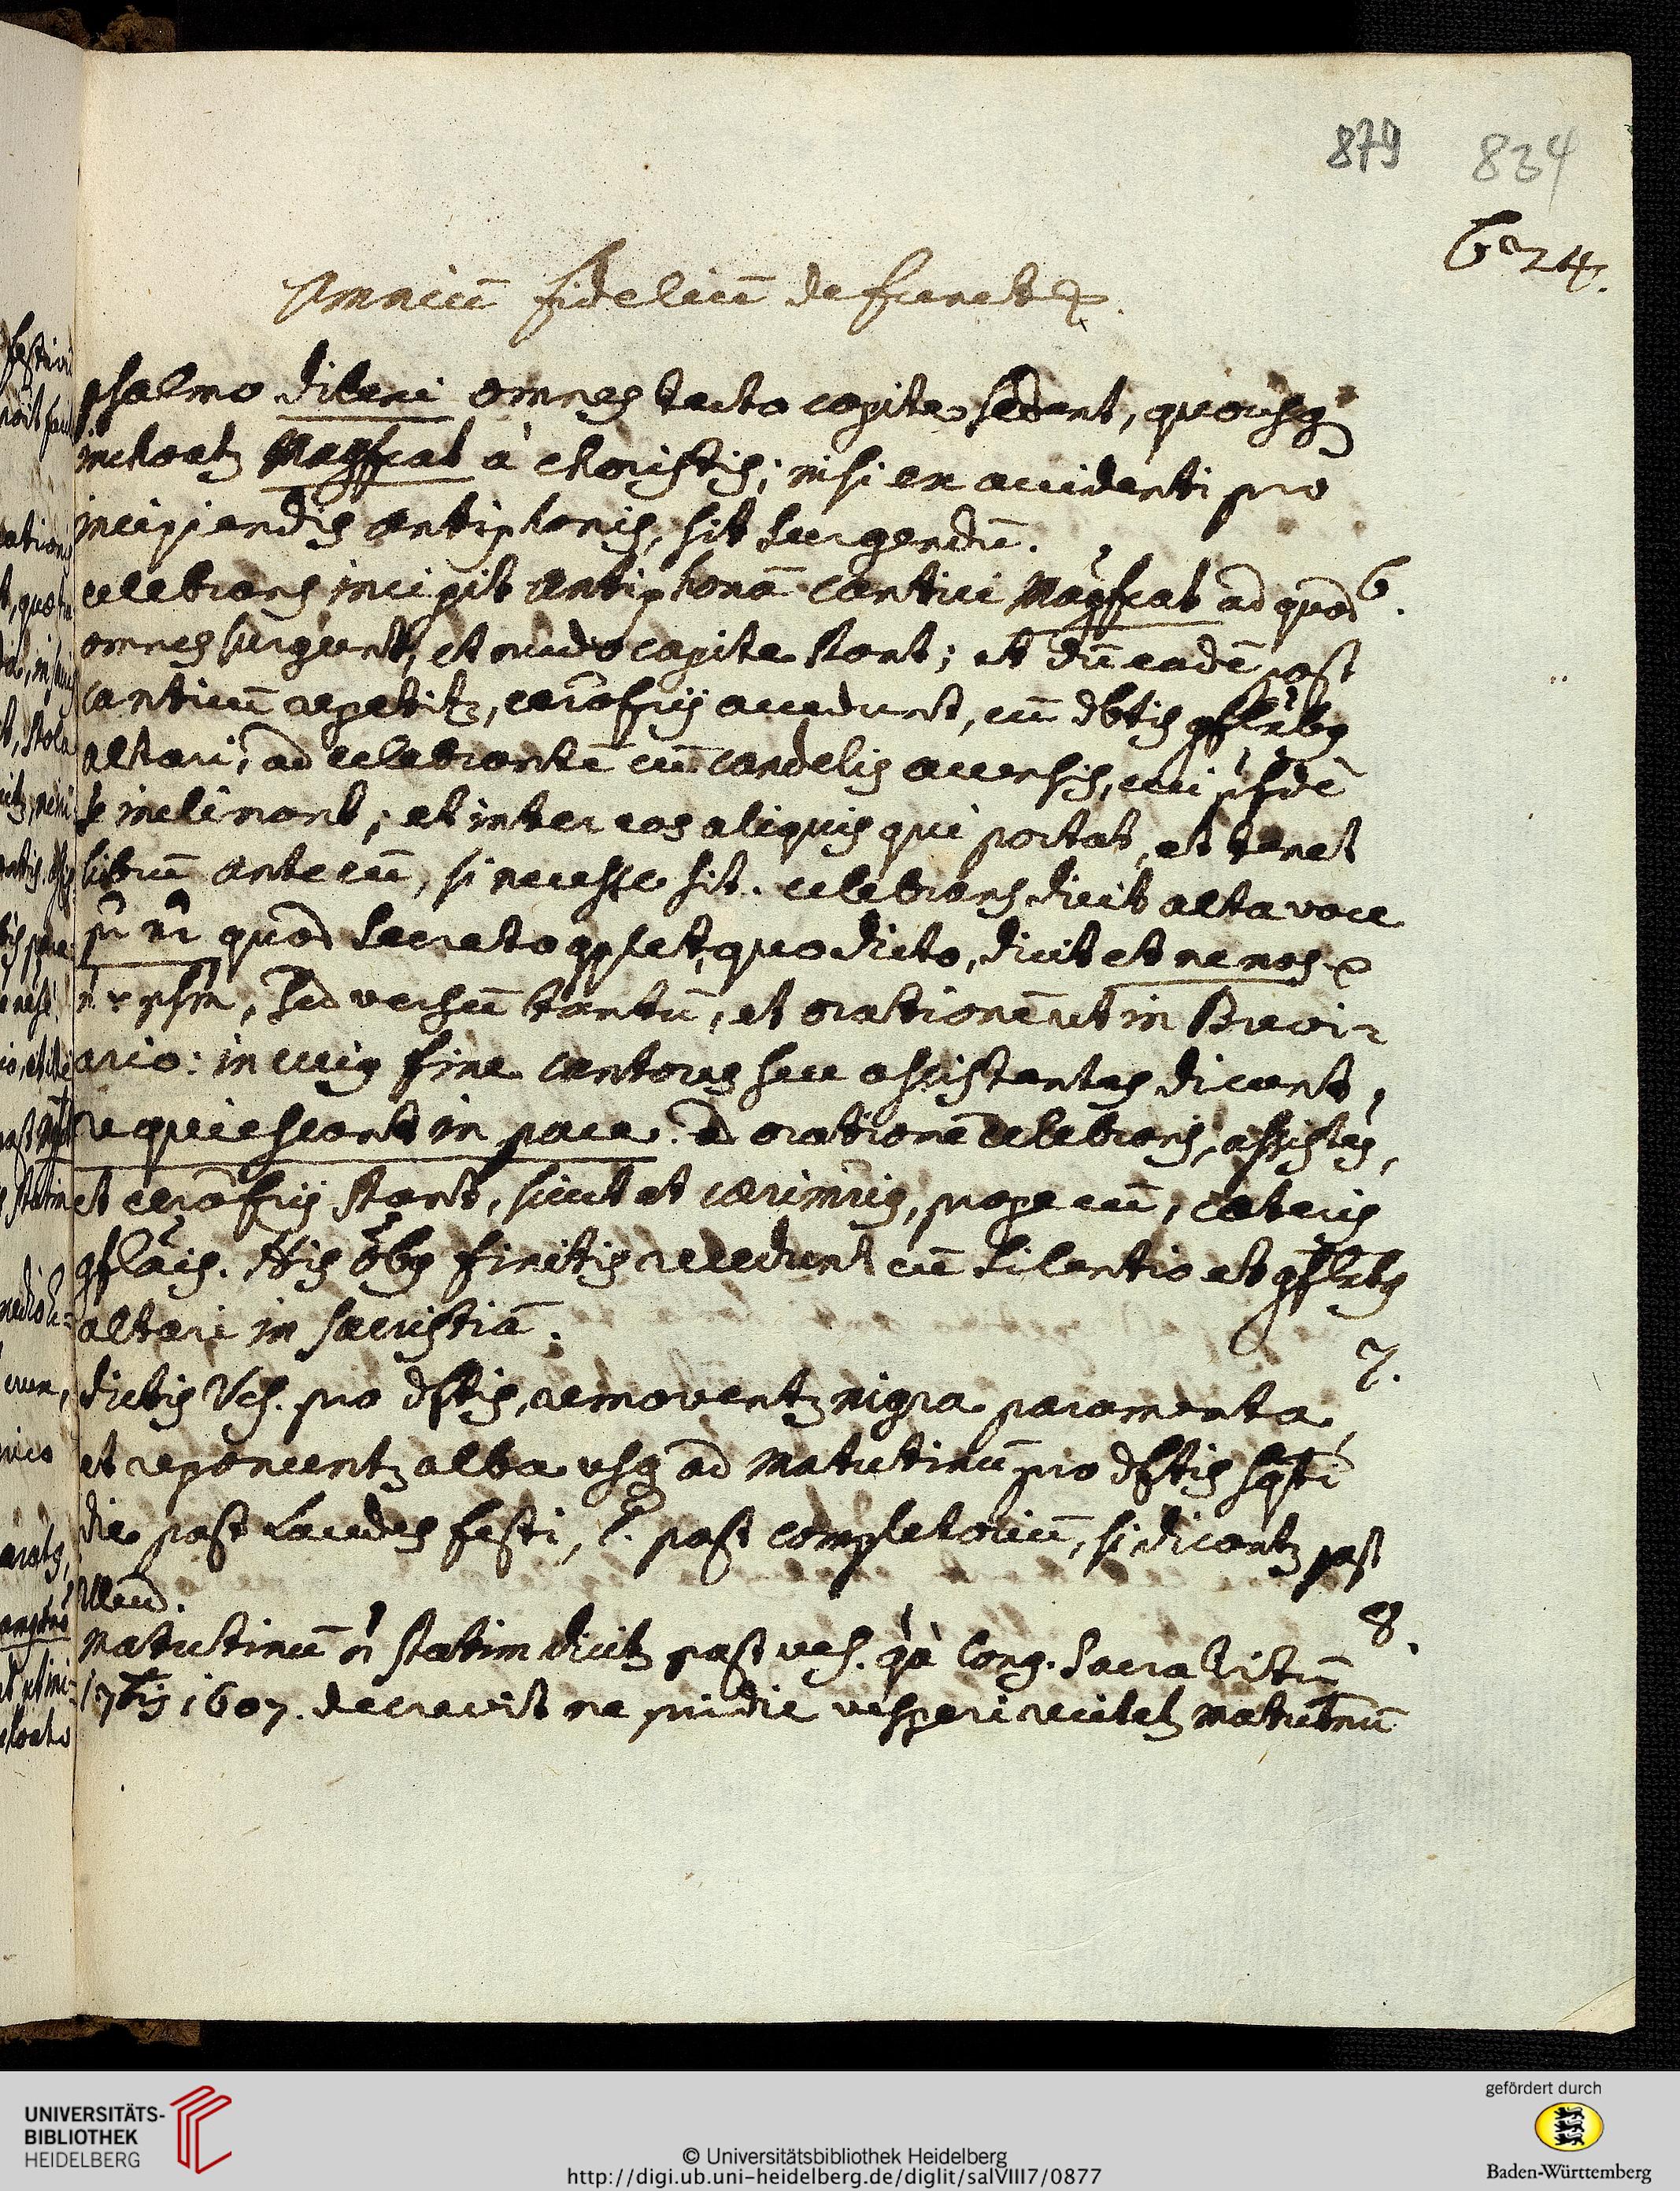 879 834
6º24.
Omniũ fideliũ defunctꝝ.
psalmo dilexi omnes tecto capite sedent, quousqꝫ
inchoatꝫ Magfcat à choristis; nisi ex accidenti pro
incipiendis antiphonis, sit surgendũ.
celebrans incipit antiphonã cantici Magfcat ad quod 6.
omnes surgunt, et nudo capite stant; et dũ eadẽ post
canticũ repetitꝫ, cerofrij accedunt, cũ dbtis gflxbꝫ
altari, ad celebrantẽ cũ candelis accensis, cui ijsdẽ
se inclinant; et inter eos aliquis qui portat, et tenet
librũ ante eũ, si necesse sit. celebrans dicit alta voce
pr nr quod secreto qplet, quo dicto, dicit et ne nos
psm, sed versũ tantũ, et orationẽ ut in Brevi-
ario: in cuiꝫ fine cantores seu assistentes dicunt,
requiescant in pace. ad orationẽ celebrans, assistẽs,
et cerofrij stant, sicut et cerimrius, prope eũ, ceteris
gflxis. His oibꝫ finitis recedunt cũ silentio et gflxbꝫ
altari in sacristiã.
7.
dictis Ves. pro dftis, removentꝫ nigra paramenta,
et reponuntꝫ alba usqꝫ ad Matutinũ pro dftis sqti
die post Laudes festi, l. post completoriũ, si dicantꝫ post
illud.
8.
Matutinũ ñ statim dicitꝫ post ves. qà Cong. Sacra Rituũ
17bris 1607. decrevit ne pridie vesperi recitetꝫ matutinũ
UNIVERSITÄTS-
BIBLIOTHEK
HEIDELBERG
© Universitätsbibliothek Heidelberg
http://digi.ub.uni-heidelberg.de/diglit/salVIII7/0877
gefördert durch
Baden-Württemberg